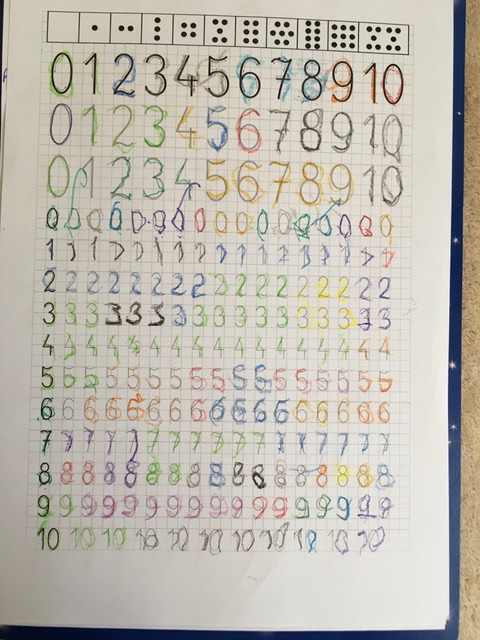 0 1 2 3 4 5 6 7 8 9 10
0 1 2 3 4 5 6 7 8 9 10
0 1 2 3 4 5 6 7 8 9 10
0 0 0 0 0 0 0 0 0 0 0 0 0 0 0 0 0
1 1 1 1 1 1 1 1 1 1 1 1 1 1 1 1 1
2 2 2 2 2 2 2 2 2 2 2 2 2 2 2 2 2
3 3 3 3 3 3 3 3 3 3 3 3 3 3 3 3 3
4 4 4 4 4 4 4 4 4 4 4 4 4 4 4 4 4
5 5 5 5 5 5 5 5 5 5 5 5 5 5 5 5 5
6 6 6 6 6 6 6 6 6 6 6 6 6 6 6 6 6
7 7 7 7 7 7 7 7 7 7 7 7 7 7 7 7 7
8 8 8 8 8 8 8 8 8 8 8 8 8 8 8 8 8
9 9 9 9 9 9 9 9 9 9 9 9 9 9 9 9 9
10 10 10 10 10 10 10 10 10 10 10